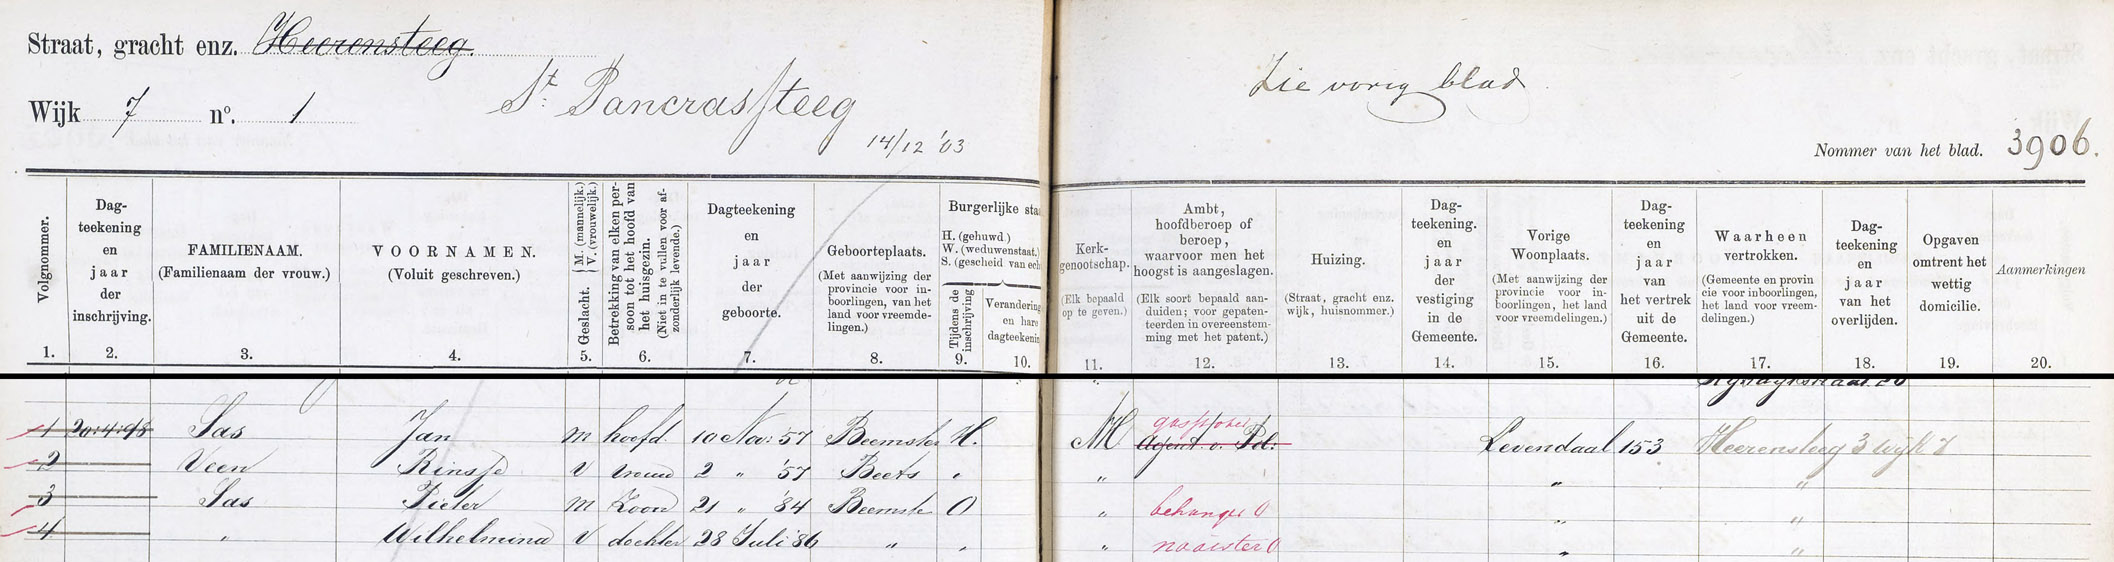 Straat, gracht enz. Heerensteeg.
Wijk 7 no. 1
St. Pancrassteeg
14/12 '03
Zie vorig blad
Nommer van het blad. 3906.
Volgnommer.
1.
Dag-
teekening
en
jaar
der
inschrijving.
2.
FAMILIENAAM.
(Familienaam der vrouw.)
3.
VOORNAMEN.
(Voluit geschreven.)
4.
Geslacht. { M. (mannelijk.)
V. (vrouwelijk.)
5.
Betrekking van elken per-
soon tot het hoofd van
het huisgezin.
(Niet in te vullen voor af-
zonderlijk levende.)
6.
Dagteekening
en
jaar
der
geboorte.
7.
Geboorteplaats.
(Met aanwijzing der
provincie voor in-
boorlingen, van het
land voor vreemde-
lingen.)
8.
Burgerlijke sta
H. (gehuwd.)
W. (weduwenstaat.)
S. (gescheid van ech
Tijdens de
inschrijving
9.
Verandering
en hare
dagteekenin
10.
Kerk-
genootschap.
(Elk bepaald
op te geven.)
11.
Ambt,
hoofdberoep of
beroep,
waarvoor men het
hoogst is aangeslagen.
(Elk soort bepaald aan-
duiden; voor gepaten-
teerden in overeenstem-
ming met het patent.)
12.
Huizing.
(Straat, gracht enz.
wijk, huisnommer.)
13.
Dag-
teekening.
en
jaar
der
vestiging
in de
Gemeente.
14.
Vorige
Woonplaats.
(Met aanwijzing der
provincie voor in-
boorlingen, het land
voor vreemdelingen.)
15.
Dag-
teekening
en
jaar
van
het vertrek
uit de
Gemeente.
16.
Waarheen
vertrokken.
(Gemeente en provin
cie voor inboorlingen,
het land voor vreem-
delingen.)
17.
Dag-
teekening
en
jaar
van het
overlijden.
18.
Opgaven
omtrent het
wettig
domicilie.
19.
Aanmerkingen
20.
1 20:4:98 Sas Jan m hoofd 10 Nov: 57 Beemster H. NH Agent v. Pol. Levendaal 153 Heerensteeg 3 wijk 7
2 Veen Rinsje v vrouw 2 " '57 Beets " " " "
3 Sas Pieter m Zoon 21 " '84 Beemster O " behanger O " "
4 " Wilhelmina v dochter 28 Juli '86 " " " naaister O " "